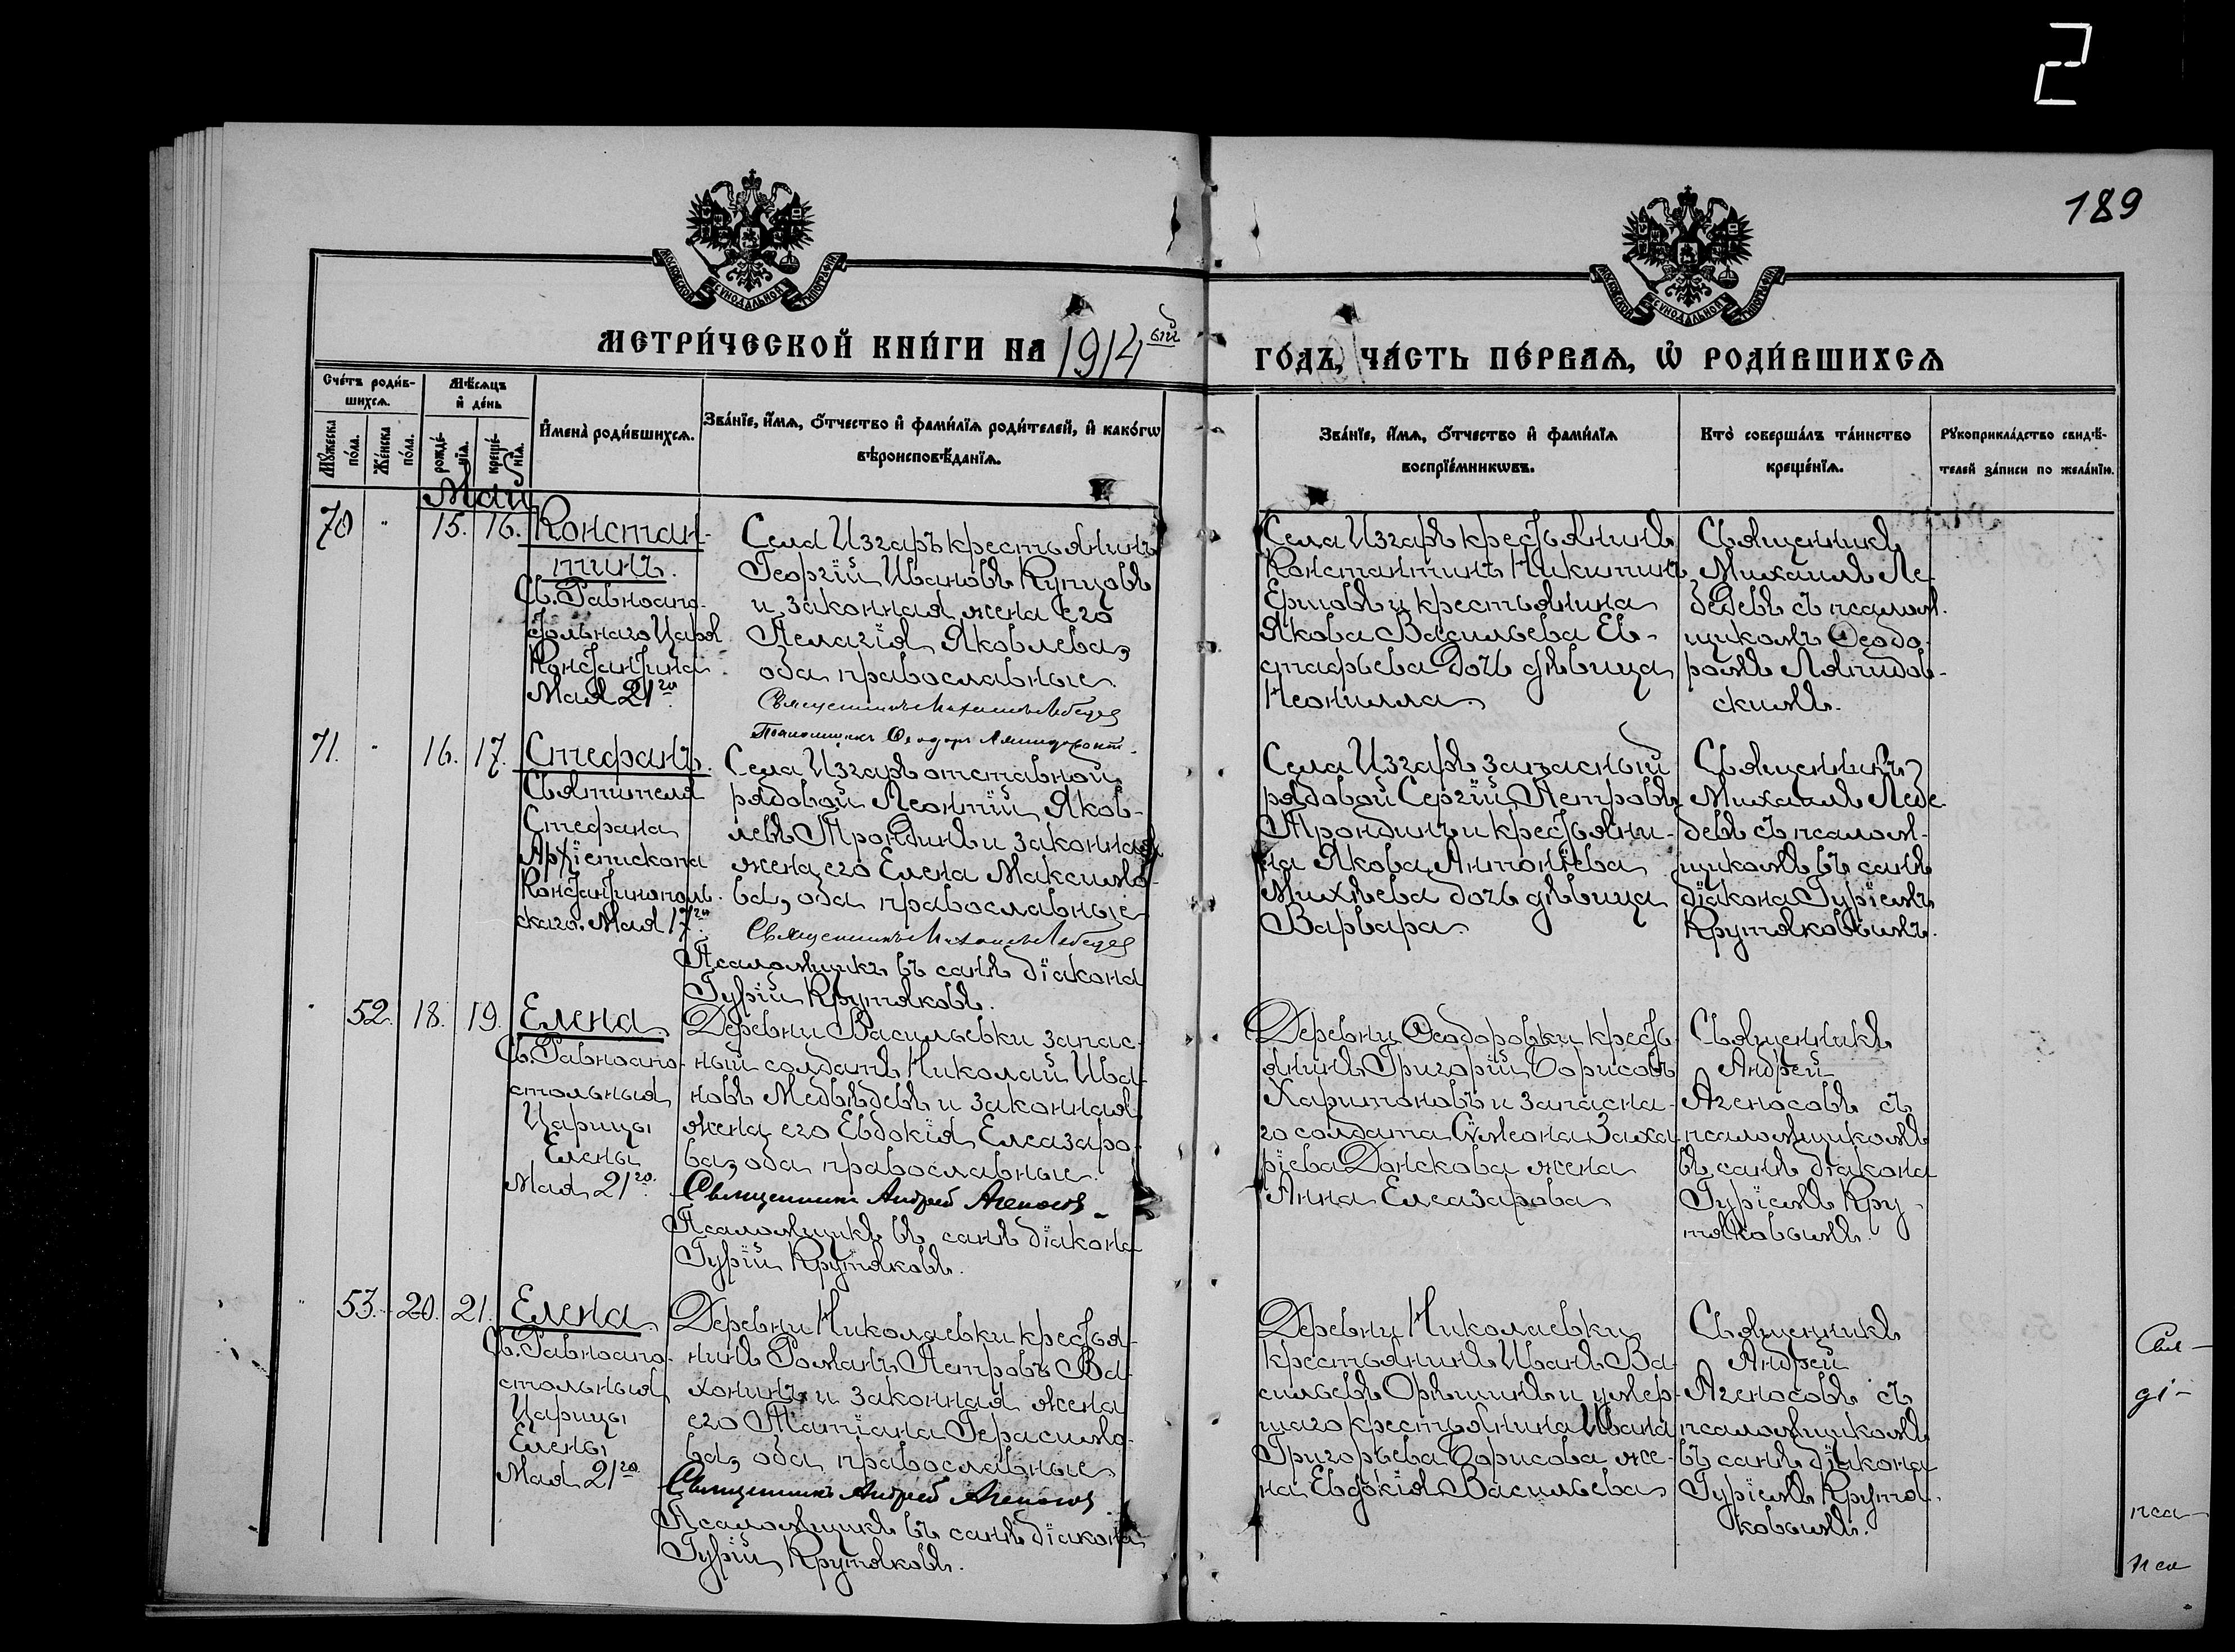 2
189
МОСКОВСКОЙ СУНОДАЛЬНОЙ ТИПОГРАФІИ
МОСКОВСКОЙ СУНОДАЛЬНОЙ ТИПОГРАФІИ
МЕТРИ́ЧЕСКОЙ КНИ́ГИ НА 1914ый
ГО́ДЪ, ЧА́СТЬ ПЕ́РВАѦ, Ѡ РОДИ́ВШИХСѦ
Сче́тъ роди́в-
шихсѧ.
Мꙋ́жеска
по́ла.
Же́нска
по́ла.
Мѣ́сѧцъ
и҆ де́нь
рожде́-
нїѧ.
креще́-
нїѧ.
И҆мена̀ роди́вшихсѧ.
Зва́нїе, и҆́мѧ, ѻ҆́тчество и҆ фами́лїѧ роди́телей, и҆ како́гѡ
вѣроисповѣ́данїѧ.
Зва́нїе, и҆́мѧ, ѻ҆́тчество и҆ фами́лїѧ
воспрїе́мникѡвъ.
Кто̀ соверша́лъ та́инство
креще́нїѧ.
Рꙋкоприкла́дство свидѣ́-
телей за́писи по жела́нїю.
Май
70 " 15. 16.
Констан-
тинъ.
Св. Равноапо-
стольнаго Царя
Константина
Мая 21го
Села Изгаръ крестьянинъ
Георгій Ивановъ Купцовъ
и законная жена его
Пелагія Яковлева,
оба православные.
Священникъ Михаилъ Лебедев
Псаломщикъ Ѳеодоръ
Села Изгаръ крестьянинъ
Константинъ Никитинъ
Ершовъ и крестьянина
Якова Васильева Ев-
стафьева дочь дѣвица
Неонилла.
Священникъ
Михаилъ Ле-
бедевъ съ псалом-
щикомъ Ѳеодо-
ромъ Ляпидов-
скимъ.
71. " 16. 17.
Стефанъ.
Святителя
Стефана
Архіепископа
Константинополь-
скаго. Мая 17го
Села Изгаръ отставной
рядовой Леонтій Яков-
левъ Трондинъ и законная
жена его Елена Максимо-
ва, оба православные
Священникъ Михаилъ Лебедев
Псаломщикъ въ санѣ діакона
Гурій Крутяковъ.
Села Изгаръ запасный
рядовой Сергій Петровъ
Трондинъ и крестьяни-
на Якова Антоніева
Михѣева дочь дѣвица
Варвара.
Священникъ
Михаилъ Лебе-
девъ съ псалом-
щикомъ въ санѣ
діакона Гуріемъ
Крутяковымъ.
" 52. 18. 19.
Елена
Св. Равноапо-
стольныя
Царицы
Елены
Мая 21го.
Деревни Васильевки запас-
ный солдатъ Николай Ива-
новъ Медвѣдевъ и законная
жена его Евдокія Елеазаро-
ва, оба православные.
Священникъ Андрей Агеносов
Псаломщикъ въ санѣ діакона
Гурій Крутяковъ.
Деревни Ѳеодоровки кресть-
янинъ Григорій Борисовъ
Харитоновъ и запасна-
го солдата Сѵмеона Заха-
ріева Донскова жена
Анна Елеазарова
Священникъ
Андрей
Агеносовъ съ
псаломщикомъ
въ санѣ діакона
Гуріемъ Кру-
тяковымъ.
" 53. 20. 21.
Елена
Св. Равноапо-
стольныя
Царицы
Елены
Мая 21го
Деревни Николаевки крестья-
нинъ Романъ Петровъ Ва-
хонинъ и законная жена
его Татіана Герасимо-
ва, оба православные
Священникъ Андрей Агеносов
Псаломщикъ въ санѣ діакона
Гурій Крутяковъ.
Деревни Николаевки
крестьянинъ Иванъ Ва-
сильевъ Орѣшинъ и умер-
шаго крестьянина Ивана
Григорьева Борисова же-
на Евдокія Васильева
Священникъ
Андрей
Агеносовъ съ
псаломщикомъ
въ санѣ діакона
Гуріемъ Крутя-
ковымъ.
Свя-
ді-
пса-
пса